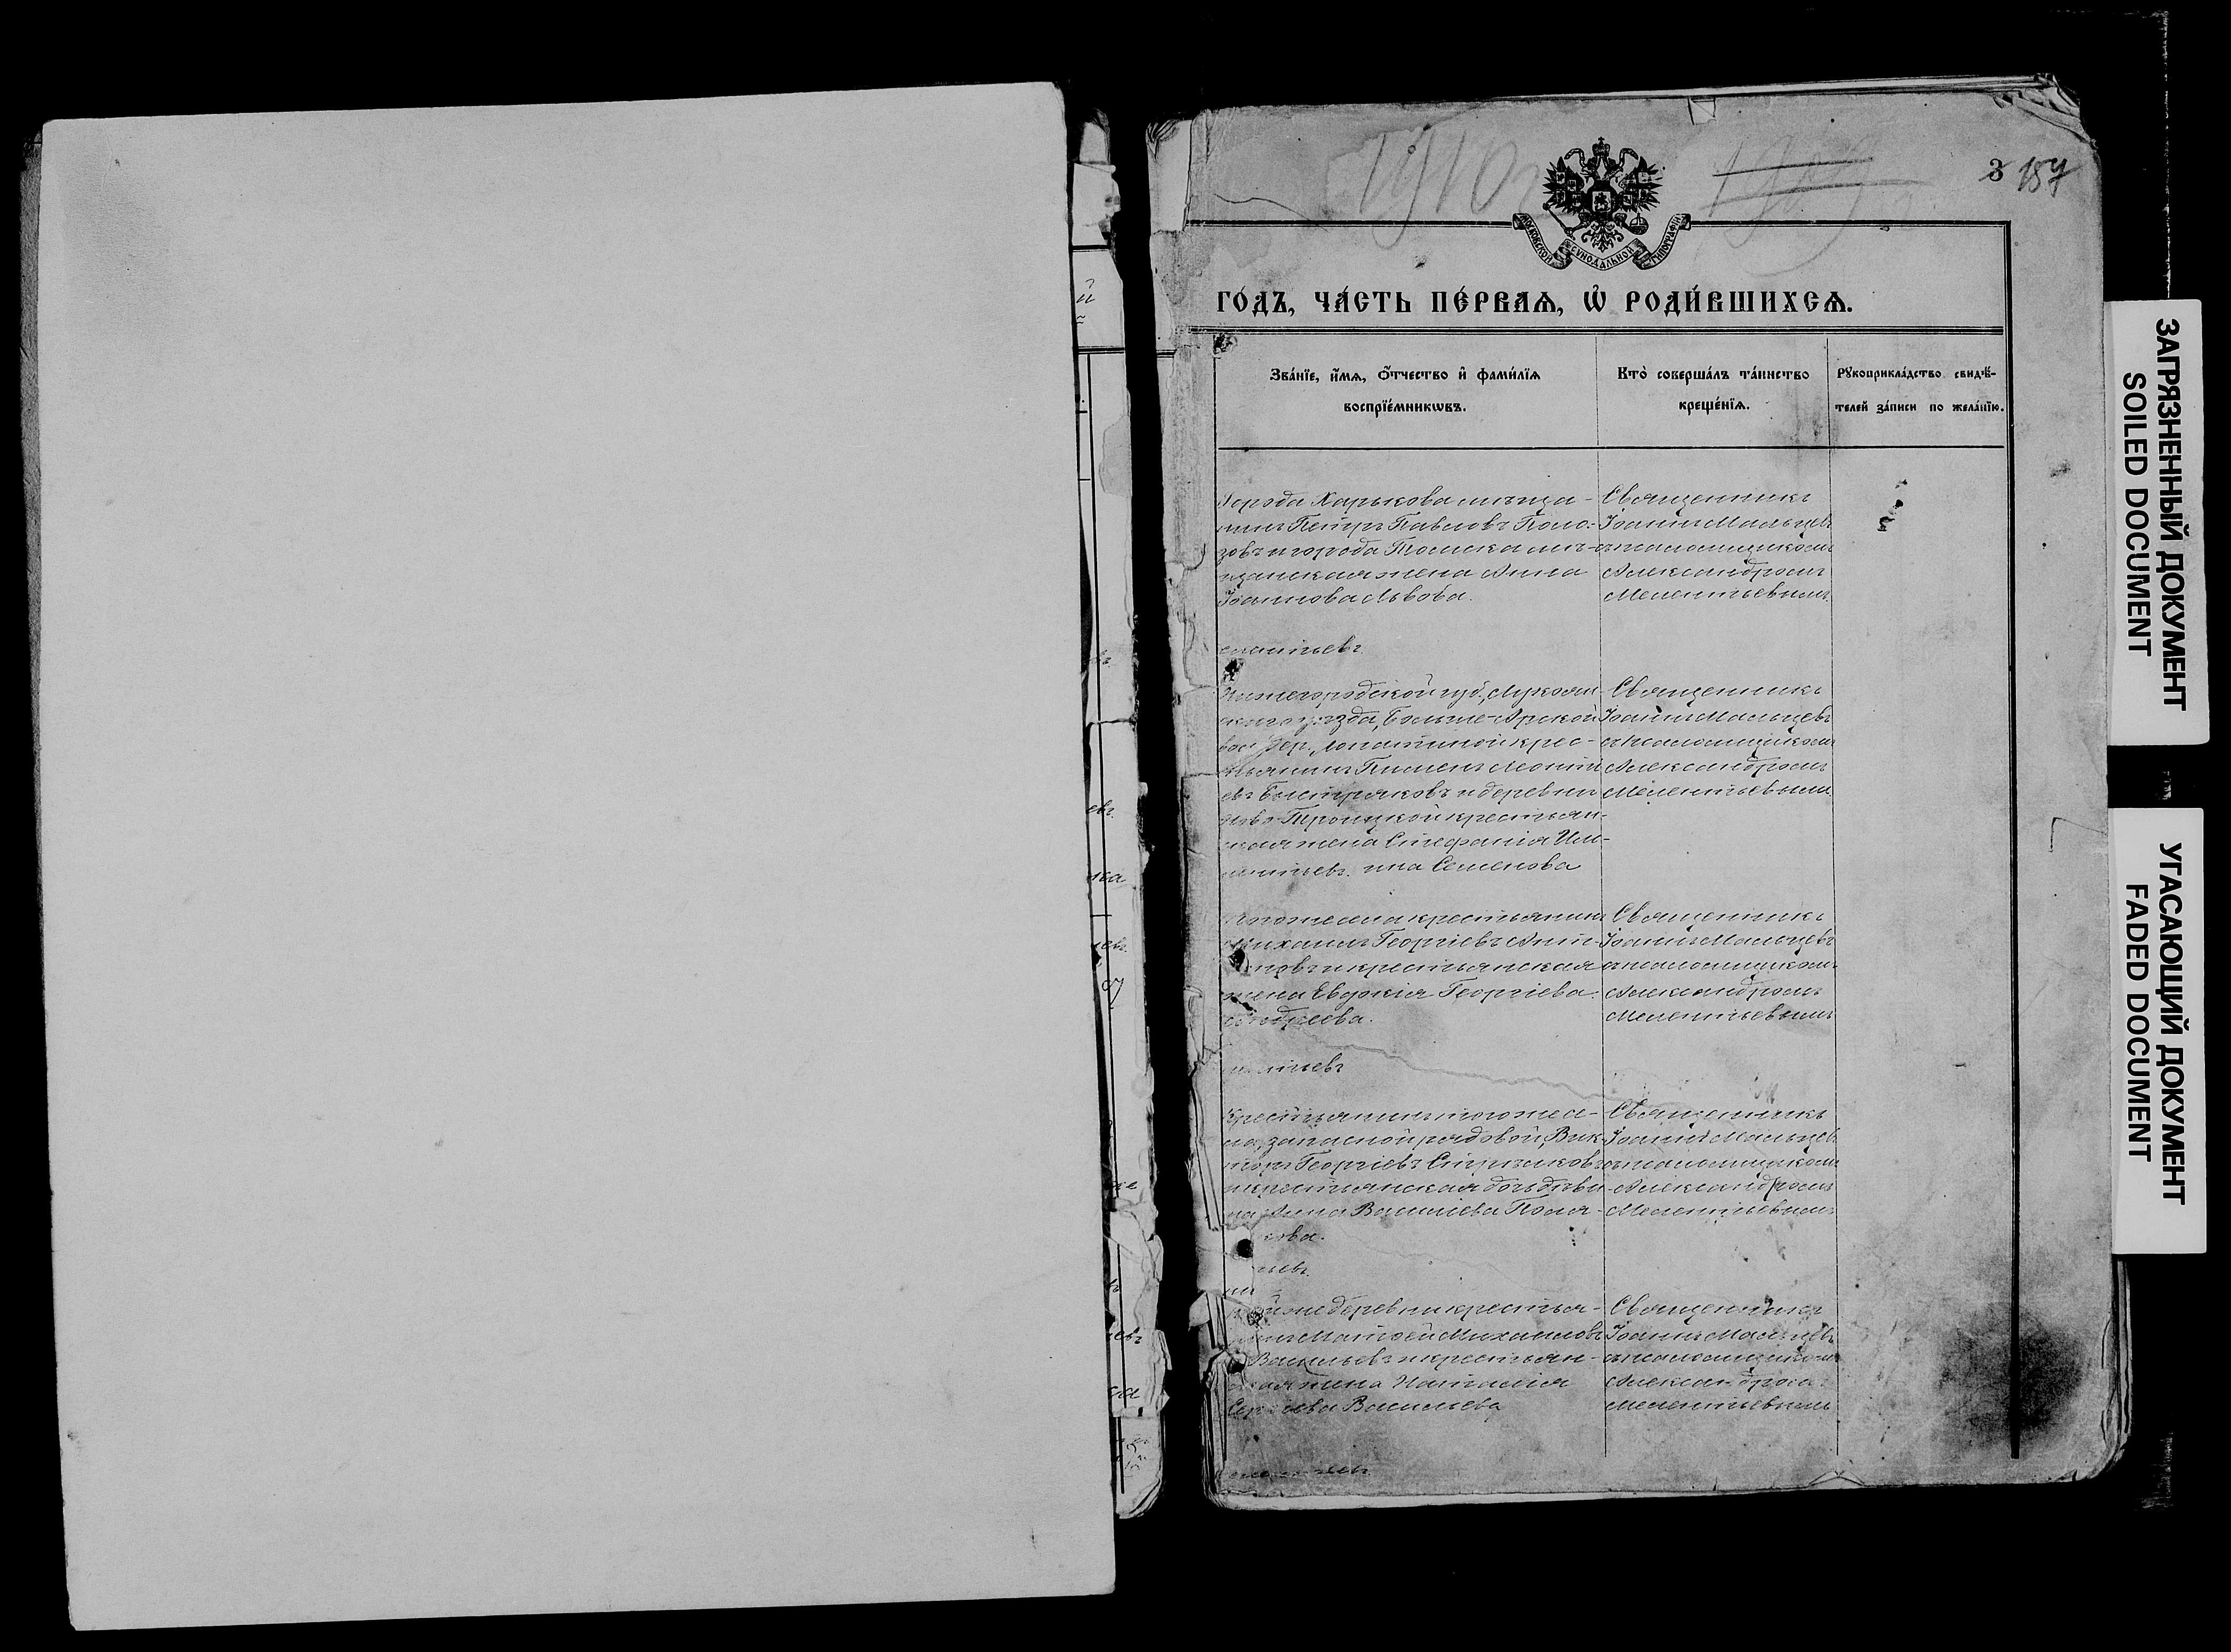 1910 г
1909
3 187
МОСКОВСКОЙ СѴНОДАЛЬНОЙ ТИПОГРАФІИ
ГО́ДЪ, ЧА́СТЬ ПЕ́РВАѦ, Ѡ҆ РОДИ́ВШИХСѦ.
Зва́нїе, и҆́мѧ, ѻ҆́тчество и҆ фами́лїѧ
воспрїе́мникѡвъ.
Кто̀ соверша́лъ та́инство
креще́нїѧ.
Рꙋкоприкла́дство свидѣ́-
телей за́писи по жела́нїю.
Города Харькова мѣща-
нинъ Петръ Павловъ Поло-
зовъ и города Томска мѣ-
щанская жена Анна
Іоаннова Львова.
Священникъ
Іоаннъ Мальцевъ
съ псаломщикомъ
Александромъ
Мелентьевымъ.
Нижегородской губ., Лукоян-
уѣзда, Больше-Арской
вол. дер. крес-
тьянинъ Пименъ Леонтi
евъ Быстряковъ и деревни
Троицкой крестьян-
жена Стефанія
Семенова
Священникъ
Іоаннъ Мальцевъ
съ псаломщикомъ
Александромъ
Мелентьевымъ.
Того же села крестьянинъ
Михаилъ Георгіевъ Анти-
повъ и крестьянская
жена Евдокія Георгіева
Андреева.
Священникъ
Іоаннъ Мальцевъ
съ псаломщикомъ
Александромъ
Мелентьевымъ
Крестьянинъ того же се-
ла, запасной рядовой, Вик-
торъ Георгіевъ
и крестьянская дочь дѣви
ца Анна Василіева Поля-
кова.
Священникъ
Іоаннъ Мальцевъ
съ псаломщикомъ
Александромъ
Мелентьевымъ
же деревни крестья-
нинъ Матѳей Михаиловъ
Васильевъ и крестьян-
жена Наталія
Сергіева Василіева
Священникъ
Іоаннъ Мальцевъ
съ псаломщикомъ
Александромъ
Мелентьевымъ
ЗАГРЯЗНЕННЫЙ ДОКУМЕНТ
SOILED DOCUMENT
УГАСАЮЩИЙ ДОКУМЕНТ
FADED DOCUMENT